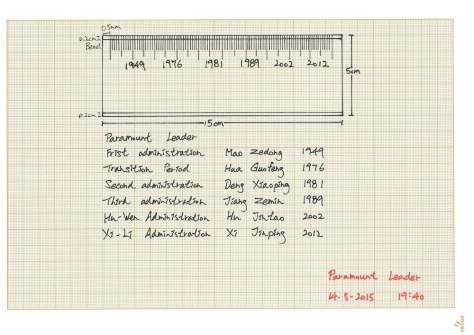 0.5mm
0.2cm
Band
1949 1976 1981 1989 2002 2012
5cm
0.2cm
15cm
Paramount Leader
Frist administration Mao Zedong 1949
Transition Period Hua Guofeng 1976
Second administration Deng Xiaoping 1981
Third administration Jiang Zemin 1989
Hu-Wen Administration Hu Jintao 2002
Xi-Li Administration Xi Jinping 2012
Paramount Leader
14-3-2015 19:40